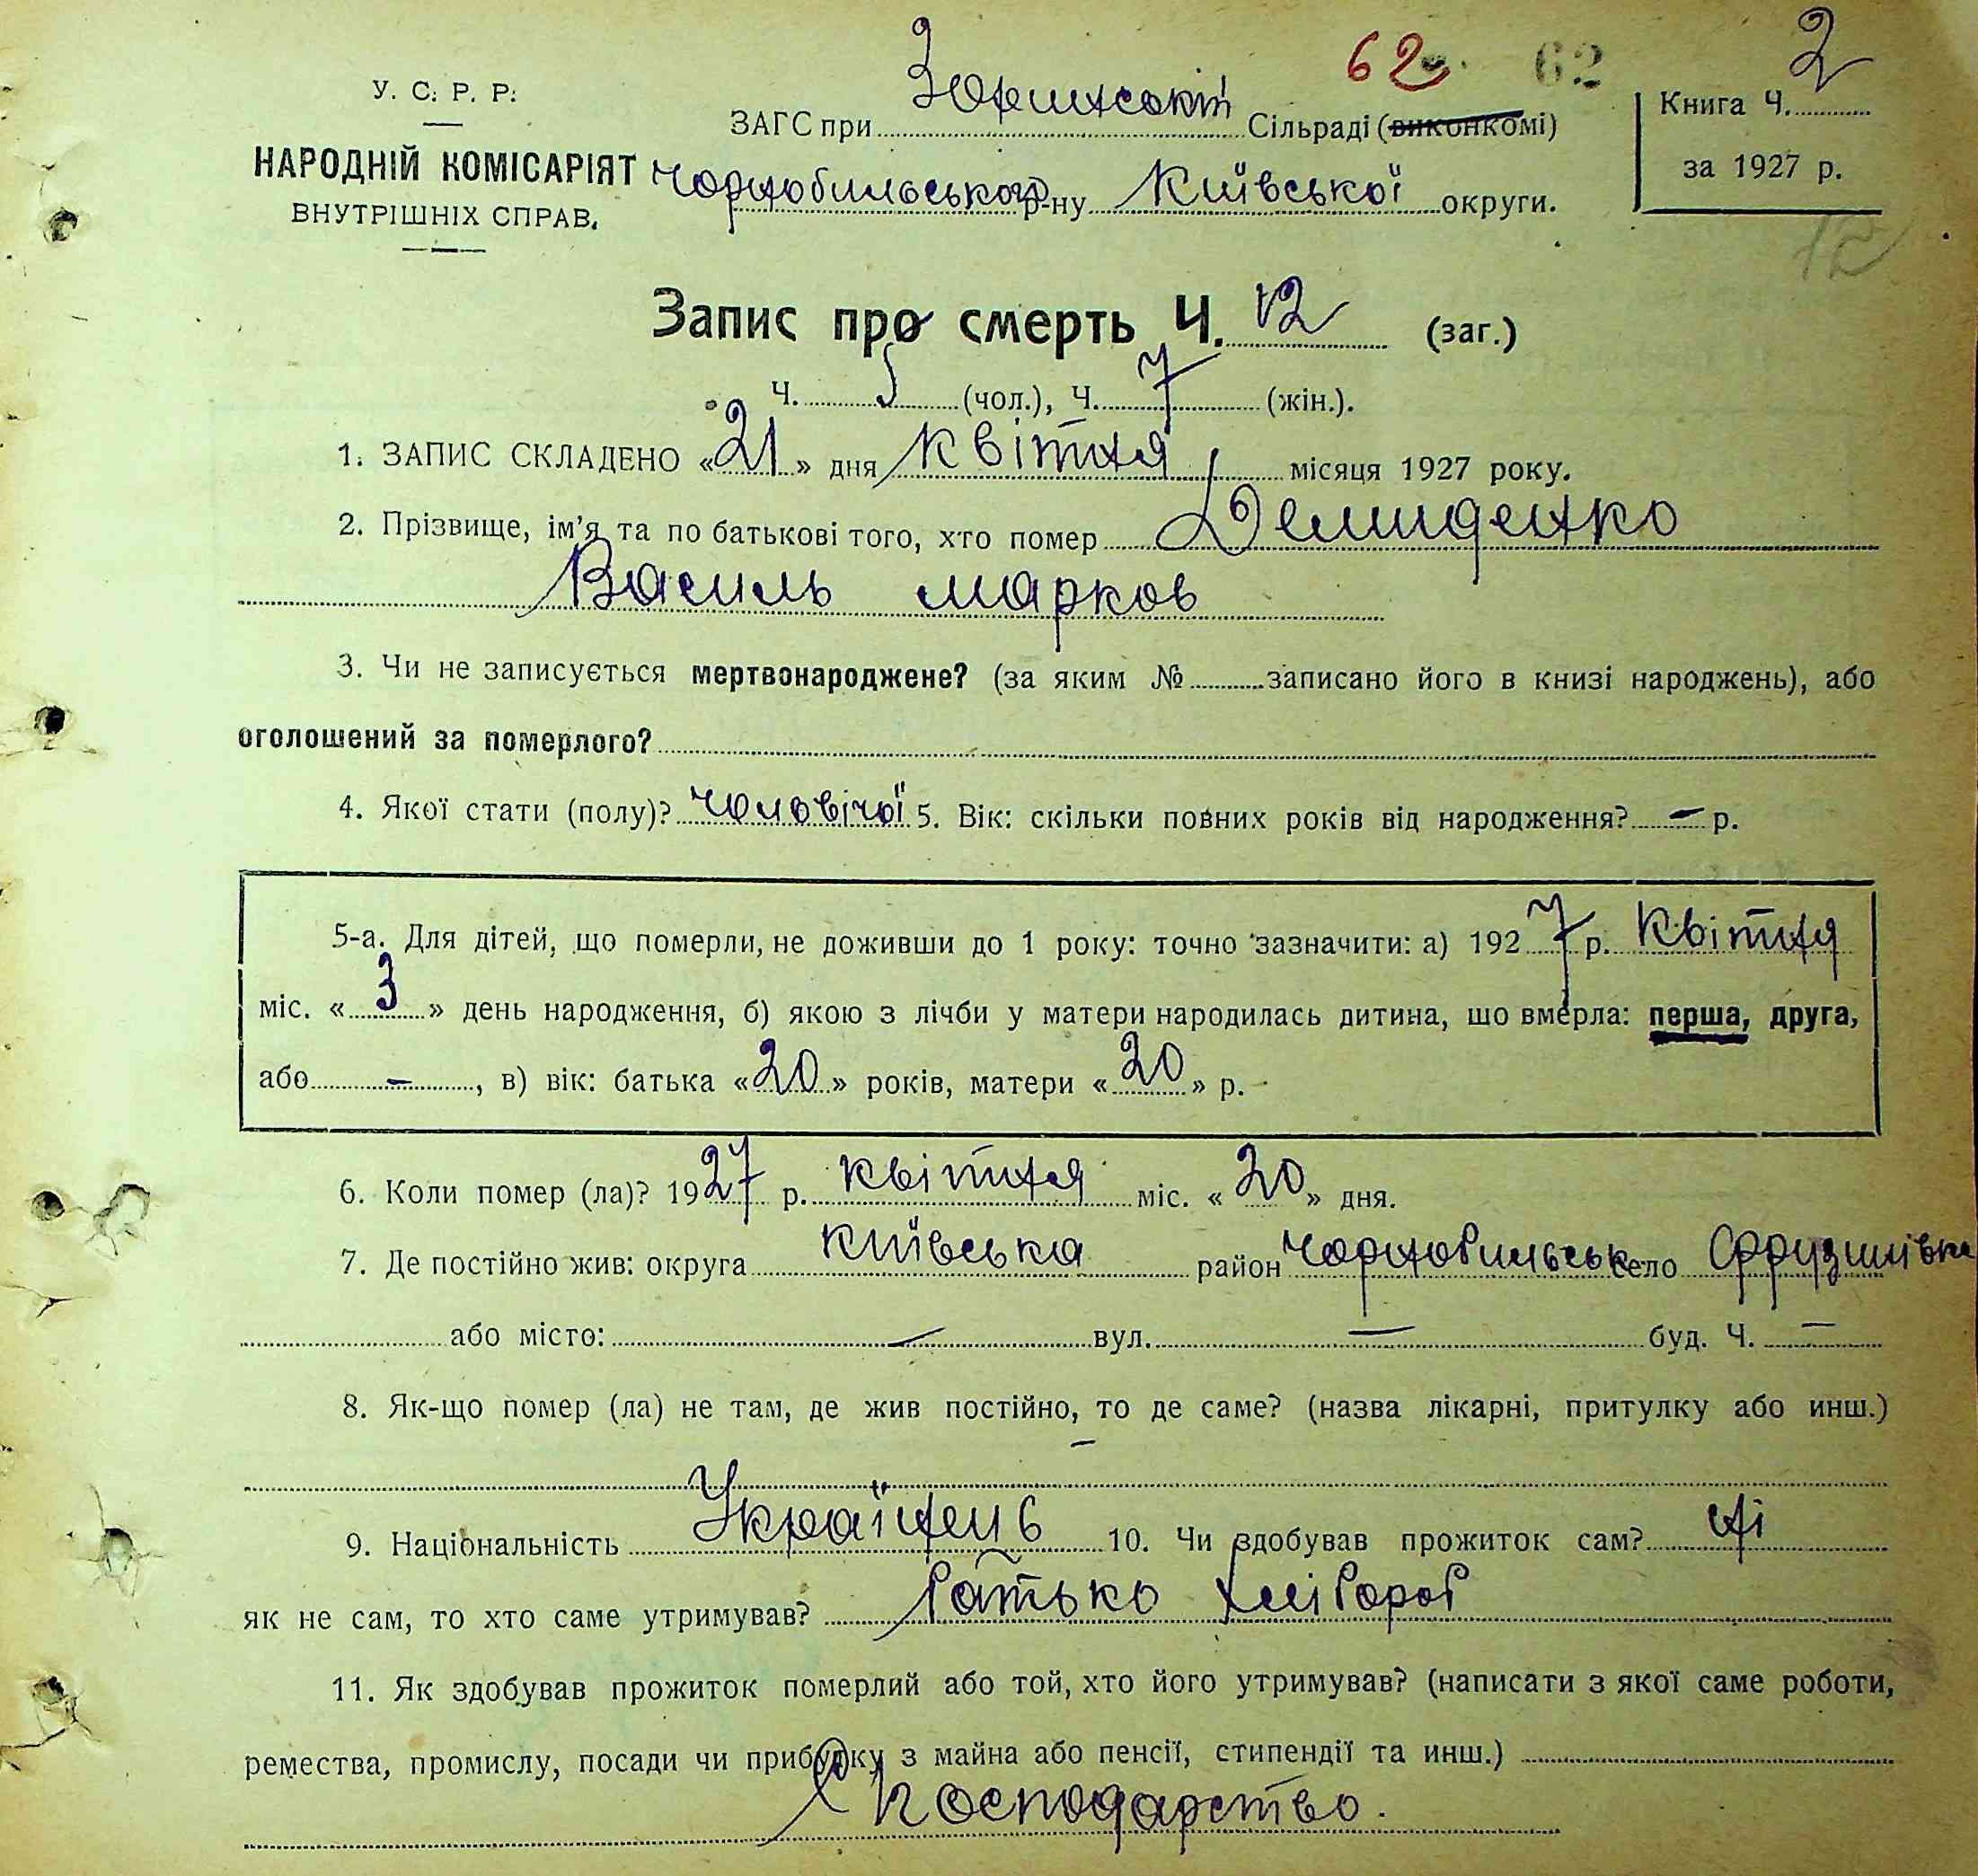 62 62 2
У. С. Р. Р.
НАРОДНІЙ КОМІСАРІЯТ
ВНУТРІШНІХ СПРАВ.
ЗАГС при Зоринській Сільраді (виконкомі)
Чорнобильського р-ну Київської округи.
Книга Ч. 2
за 1927 р.
12
Запис про смерть Ч. 12 (заг.)
Ч. 5 (чол.), Ч. 7 (жін.).
1. ЗАПИС СКЛАДЕНО «21» дня квітня місяця 1927 року.
2. Прізвище, ім'я та по батькові того, хто помер Демиденко
Василь Марков
3. Чи не записується мертвонароджене? (за яким № записано його в книзі народжень), або
оголошений за померлого?
4. Якої стати (полу)? чоловічої 5. Вік: скільки повних років від народження? – р.
5-а. Для дітей, що померли, не доживши до 1 року: точно зазначити: а) 1927 р. Квітня
міс. «3» день народження, б) якою з лічби у матери народилась дитина, що вмерла: перша, друга,
або –, в) вік: батька «20» років, матери «20» р.
6. Коли помер (ла)? 1927 р. квітня міс. «20» дня.
7. Де постійно жив: округа київська район Чорнобильськ село
або місто: – вул. – буд. Ч. –
8. Як-що помер (ла) не там, де жив постійно, то де саме? (назва лікарні, притулку або инш.)
–
9. Національність Українець 10. Чи здобував прожиток сам? ні
як не сам, то хто саме утримував? батько хлібороб
11. Як здобував прожиток померлий або той, хто його утримував? (написати з якої саме роботи,
ремества, промислу, посади чи прибудку з майна або пенсії, стипендії та инш.)
Господарство.